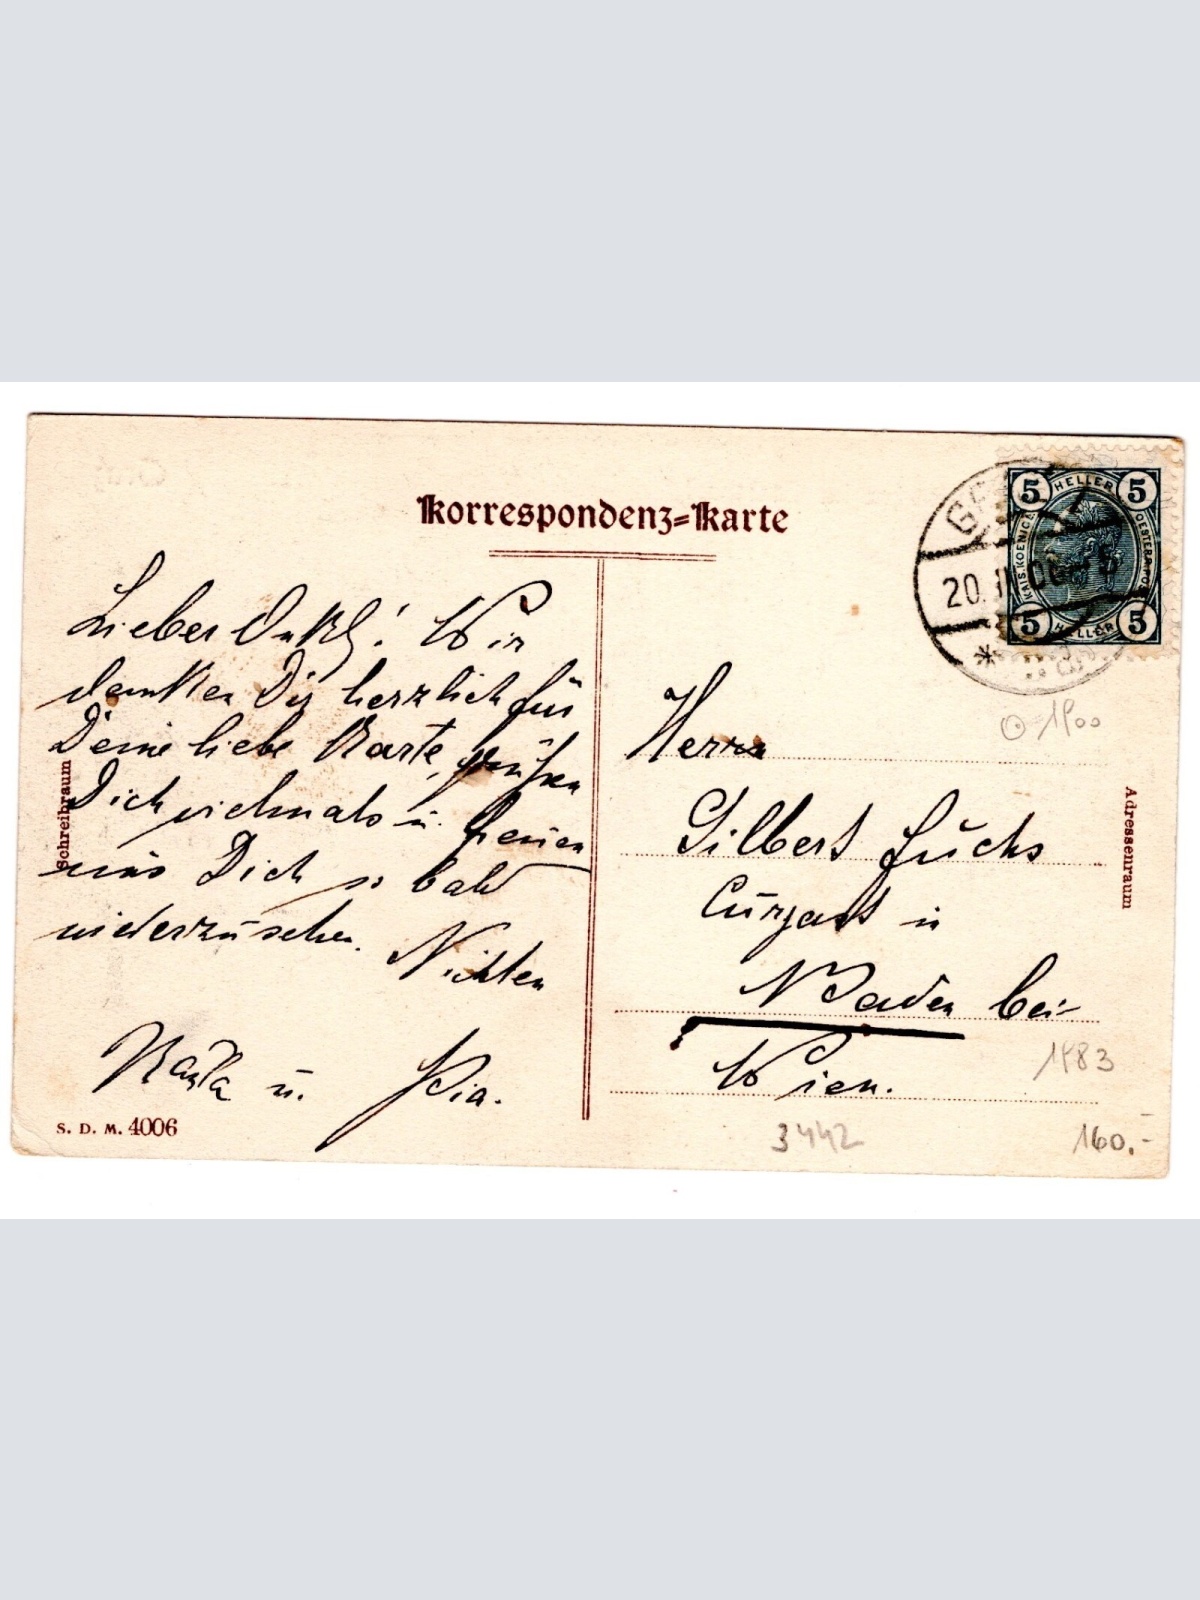 Korrespondenz=Karte
5 HELLER 5
KAIS. KOENIGL. OESTERR. POST
5 HELLER 5
20. 06
Schreibraum
Adressenraum
Lieber Onkel! Wir
danken Dir herzlich für
Deine liebe Karte, grüßen
Dich vielmals u. freuen
uns Dich so bald
wiederzusehen. Nichten
u. Pia.
S. D. M. 4006
Herrn
Gilbert Fuchs
Curgast in
Baden bei
Wien.
1900
1883
3442
160.-